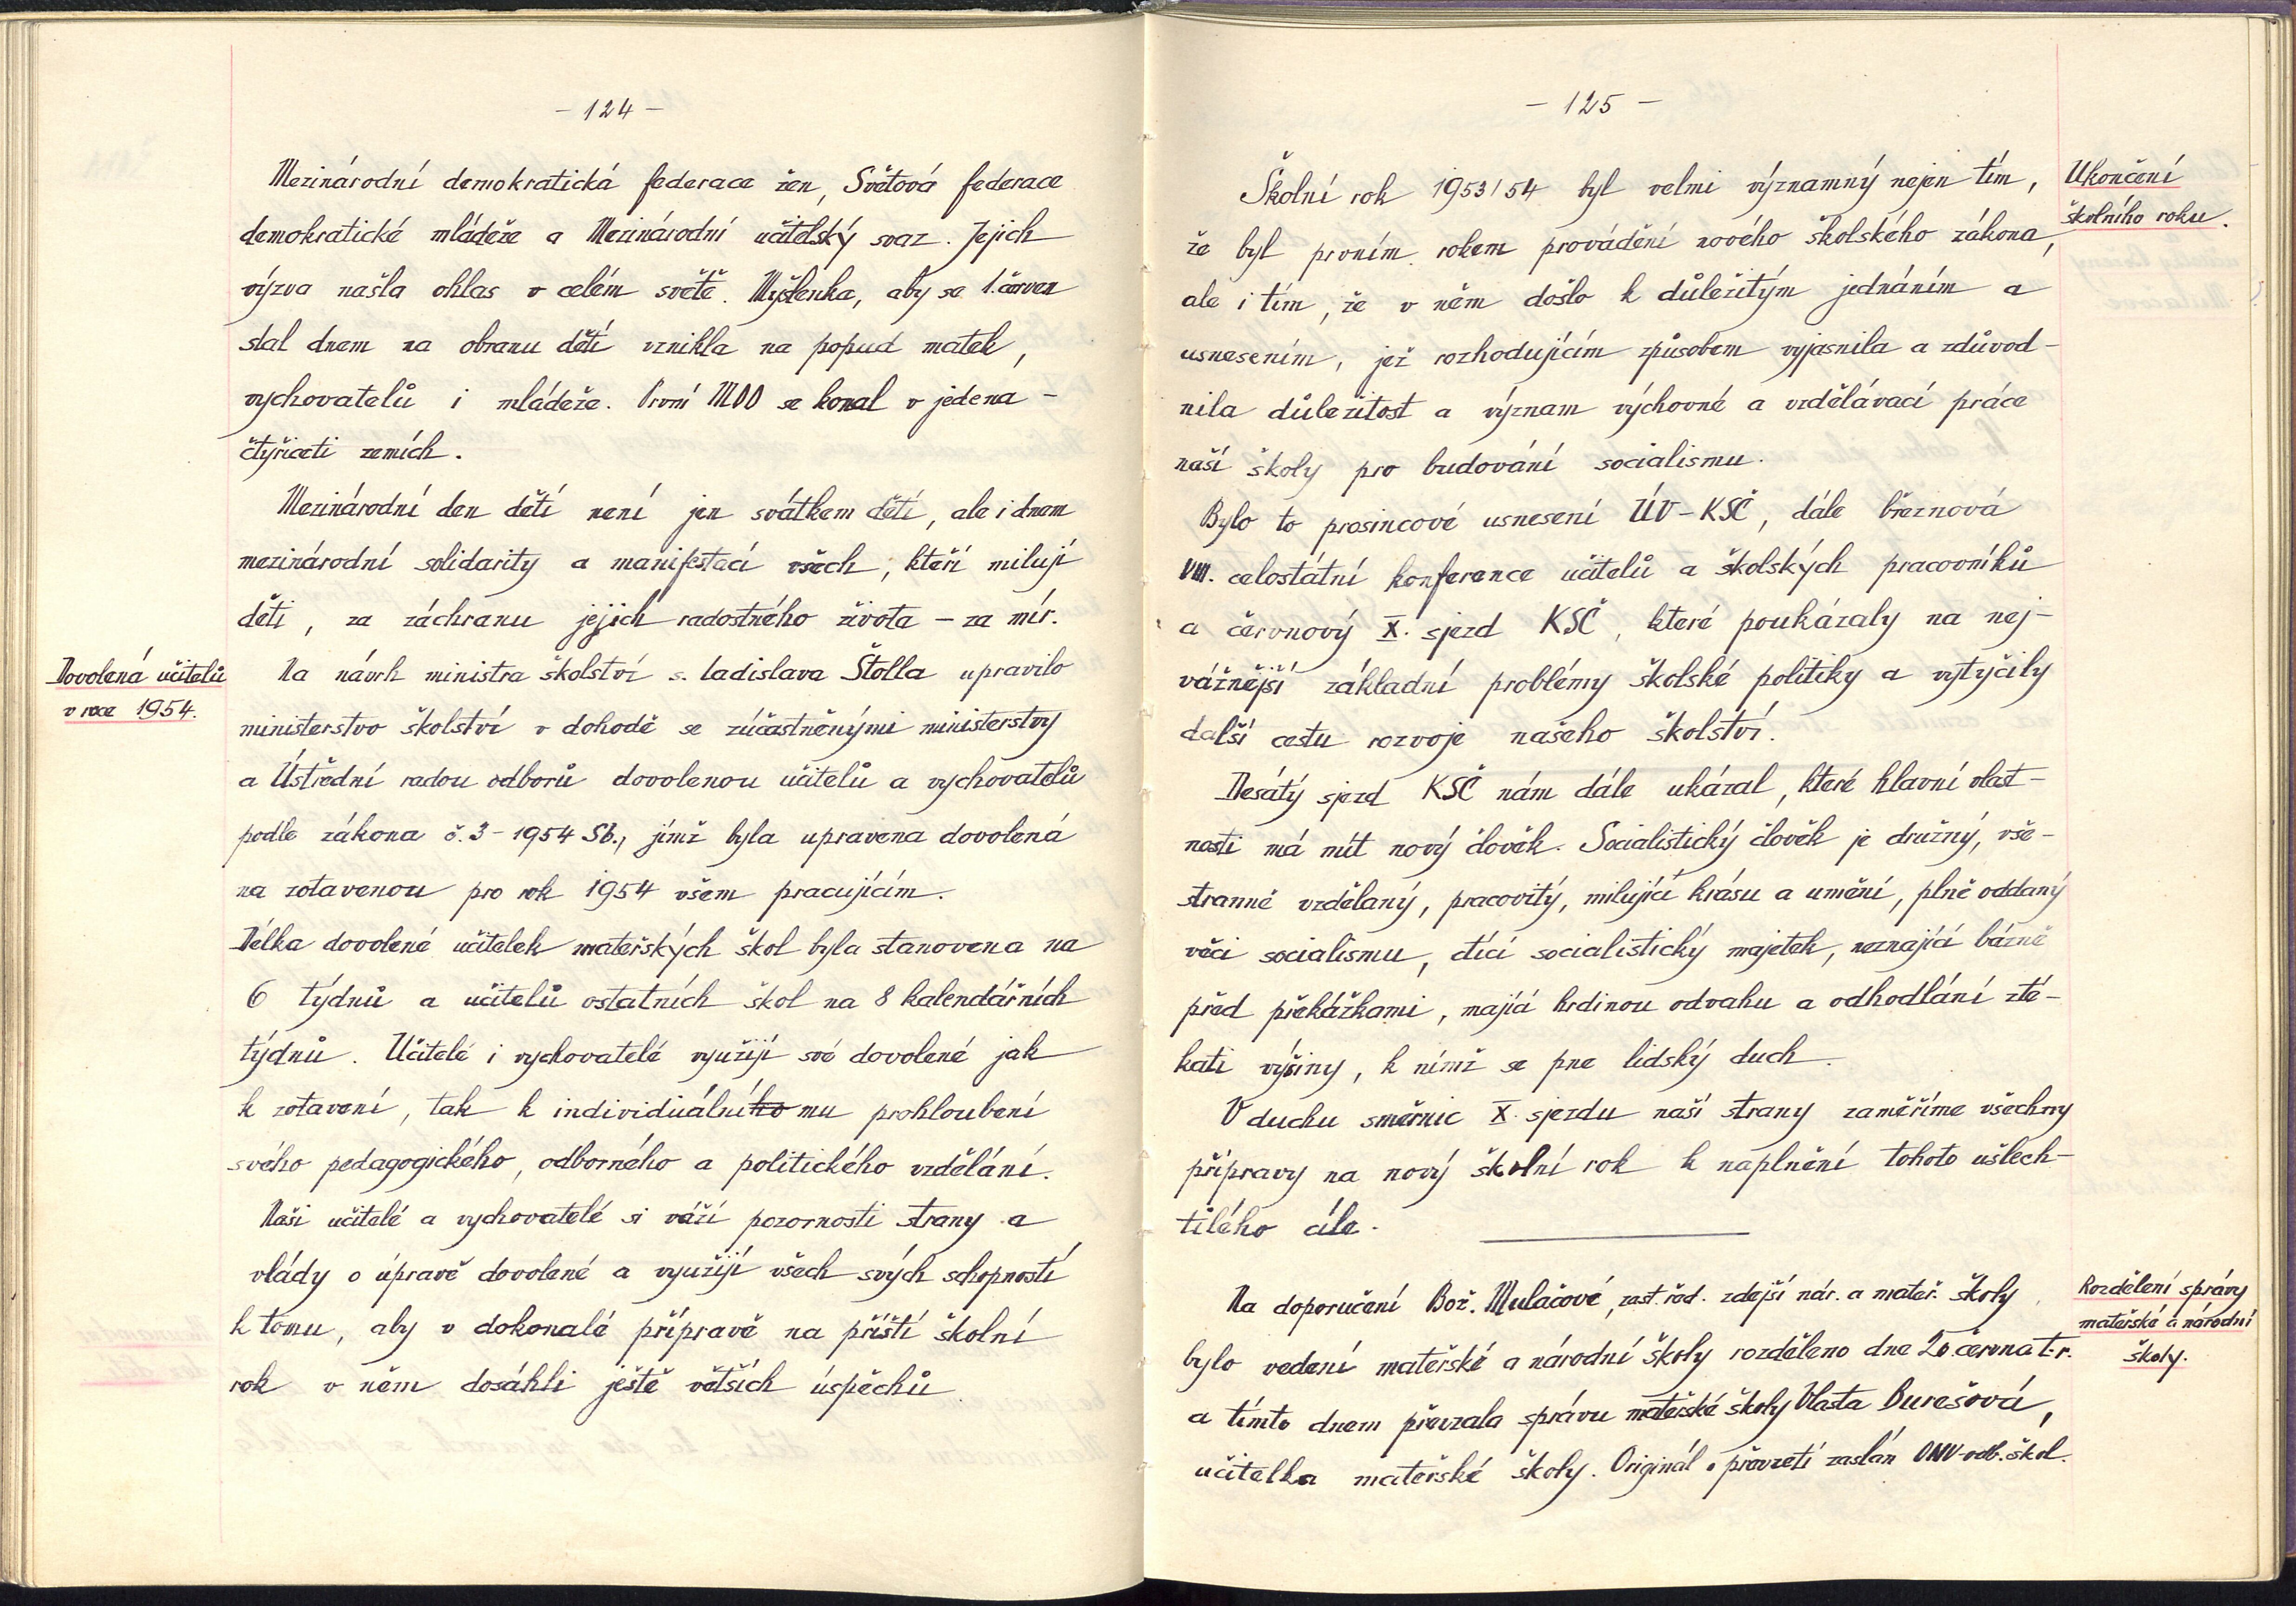 - 124 -
Mezinárodní demokratická federace žen, Světová federace
demokratické mládeže a Mezinárodní učitelský svaz. Jejich
výzva našla ohlas v celém světě. Myšlenka, aby se 1. červen
stal dnem na obranu dětí vznikla na popud matek,
vychovatelů i mládeže. První MDD se konal v jedena-
čtyřiceti zemích.
Mezinárodní den dětí není jen svátkem dětí, ale i dnem
mezinárodní solidarity a manifestací všech, kteří milují
děti, za záchranu jejich radostného života - za mír.
Dovolená učitelů
v roce 1954.
Na návrh ministra školství s. Ladislava Štolla upravilo
ministerstvo školství v dohodě se zúčastněnými ministerstvy
a Ústřední radou odborů dovolenou učitelů a vychovatelů
podle zákona č. 3-1954 Sb., jímž byla upravena dovolená
na zotavenou pro rok 1954 všem pracujícím.
Délka dovolené učitelek mateřských škol byla stanovena na
6 týdnů a učitelů ostatních škol na 8 kalendářních
týdnů. Učitelé i vychovatelé využijí své dovolené jak
k zotavení, tak k individuálníhomu prohloubení
svého pedagogického, odborného a politického vzdělání.
Naši učitelé a vychovatelé si váží pozornosti strany a
vlády o úpravě dovolené a využijí všech svých schopností
k tomu, aby v dokonalé přípravě na příští školní
rok v něm dosáhli ještě větších úspěchů
- 125 -
Ukončení
školního roku.
Školní rok 1953/54 byl velmi významný nejen tím,
že byl prvním rokem provádění nového školského zákona,
ale i tím, že v něm došlo k důležitým jednáním a
usnesením, jež rozhodujícím způsobem vyjasnila a zdůvod-
nila důležitost a význam výchovné a vzdělávací práce
naší školy pro budování socialismu.
Bylo to prosincové usnesení ÚV-KSČ, dále březnová
VIII. celostátní konference učitelů a školských pracovníků
a červnový X. sjezd KSČ, které poukázaly na nej-
vážnější základní problémy školské politiky a vytyčily
další cestu rozvoje našeho školství.
Desátý sjezd KSČ nám dále ukázal, které hlavní vlast-
nosti má mít nový člověk. Socialistický člověk je družný, vše-
stranně vzdělaný, pracovitý, milující krásu a umění, plně oddaný
věci socialismu, ctící socialistický majetek, neznající bázně
před překážkami, mající hrdinou odvahu a odhodlání zté-
kati výšiny, k nímž se pne lidský duch.
V duchu směrnic X. sjezdu naší strany zaměříme všechny
přípravy na nový školní rok k naplnění tohoto ušlech-
tilého cíle.
Rozdělení správy
mateřské a národní
školy.
Na doporučení Bož. Mulačové, zast. řed. zdejší nár. a mateř. školy
bylo vedení mateřské a národní školy rozděleno dne 20. června t.r.
a tímto dnem převzala správu mateřské školy Vlasta Burešová,
učitelka mateřské školy. Originál o převzetí zaslán ONV-odb. škol.